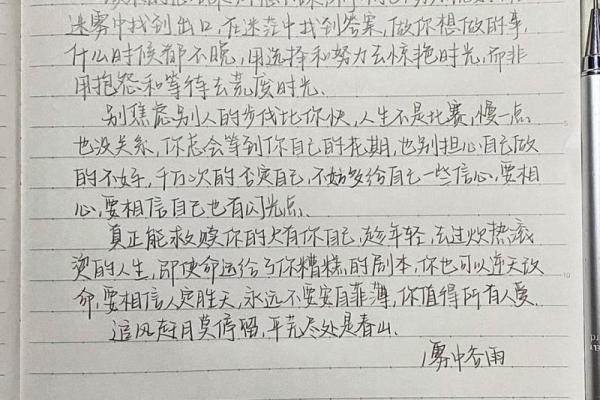 迷雾中找到出口,在迷茫中找到答案,做你想做的事,
什么时候都不晚,用选择和努力去惊艳时光,而非
用抱怨和等待去荒度时光。
别焦虑别人的步伐比你快,人生不是比赛,慢一点
也没关系,你总会等到你自己的花期,也别担心自己做
的不好,千万次的否定自己,不妨多给自己一些信心,要相
心,要相信自己也有闪光点。
真正能救赎你的只有你自己,趁年轻,去过炽热滚
烫的人生,即使命运给了你糟糕的剧本,你也可以逆天改
命,要相信人定胜天,永远不要妄自菲薄,你值得所有人爱。
追风赶月莫停留,平芜尽处是春山.
雾中谷雨
5
10